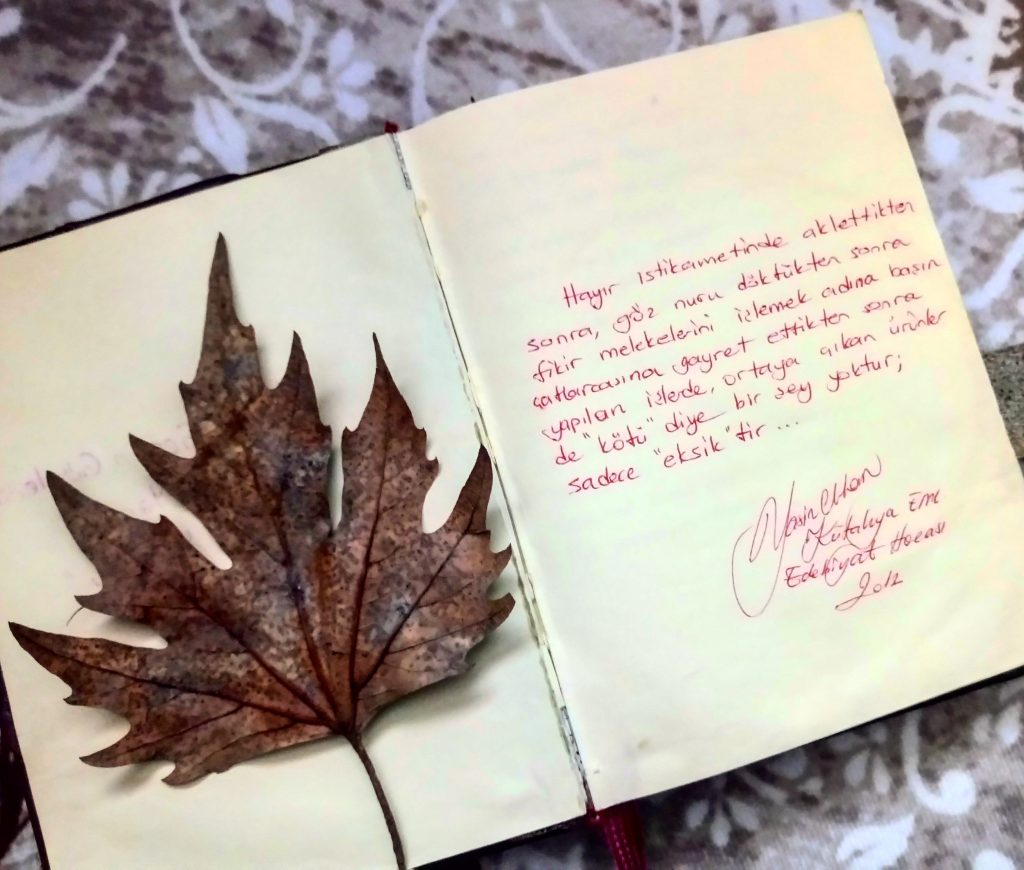 Hayır istikametinde aklettikten
sonra, göz nuru döktükten sonra
fikir melekelerini işlemek adına basın
çatlarcasına gayret ettikten sonra
yapılan işlerde, ortaya çıkan ürünler
de "kötü" diye bir şey yoktur;
sadece "eksik"tir ...
Kütahya
Edebiyat Hocası
2012